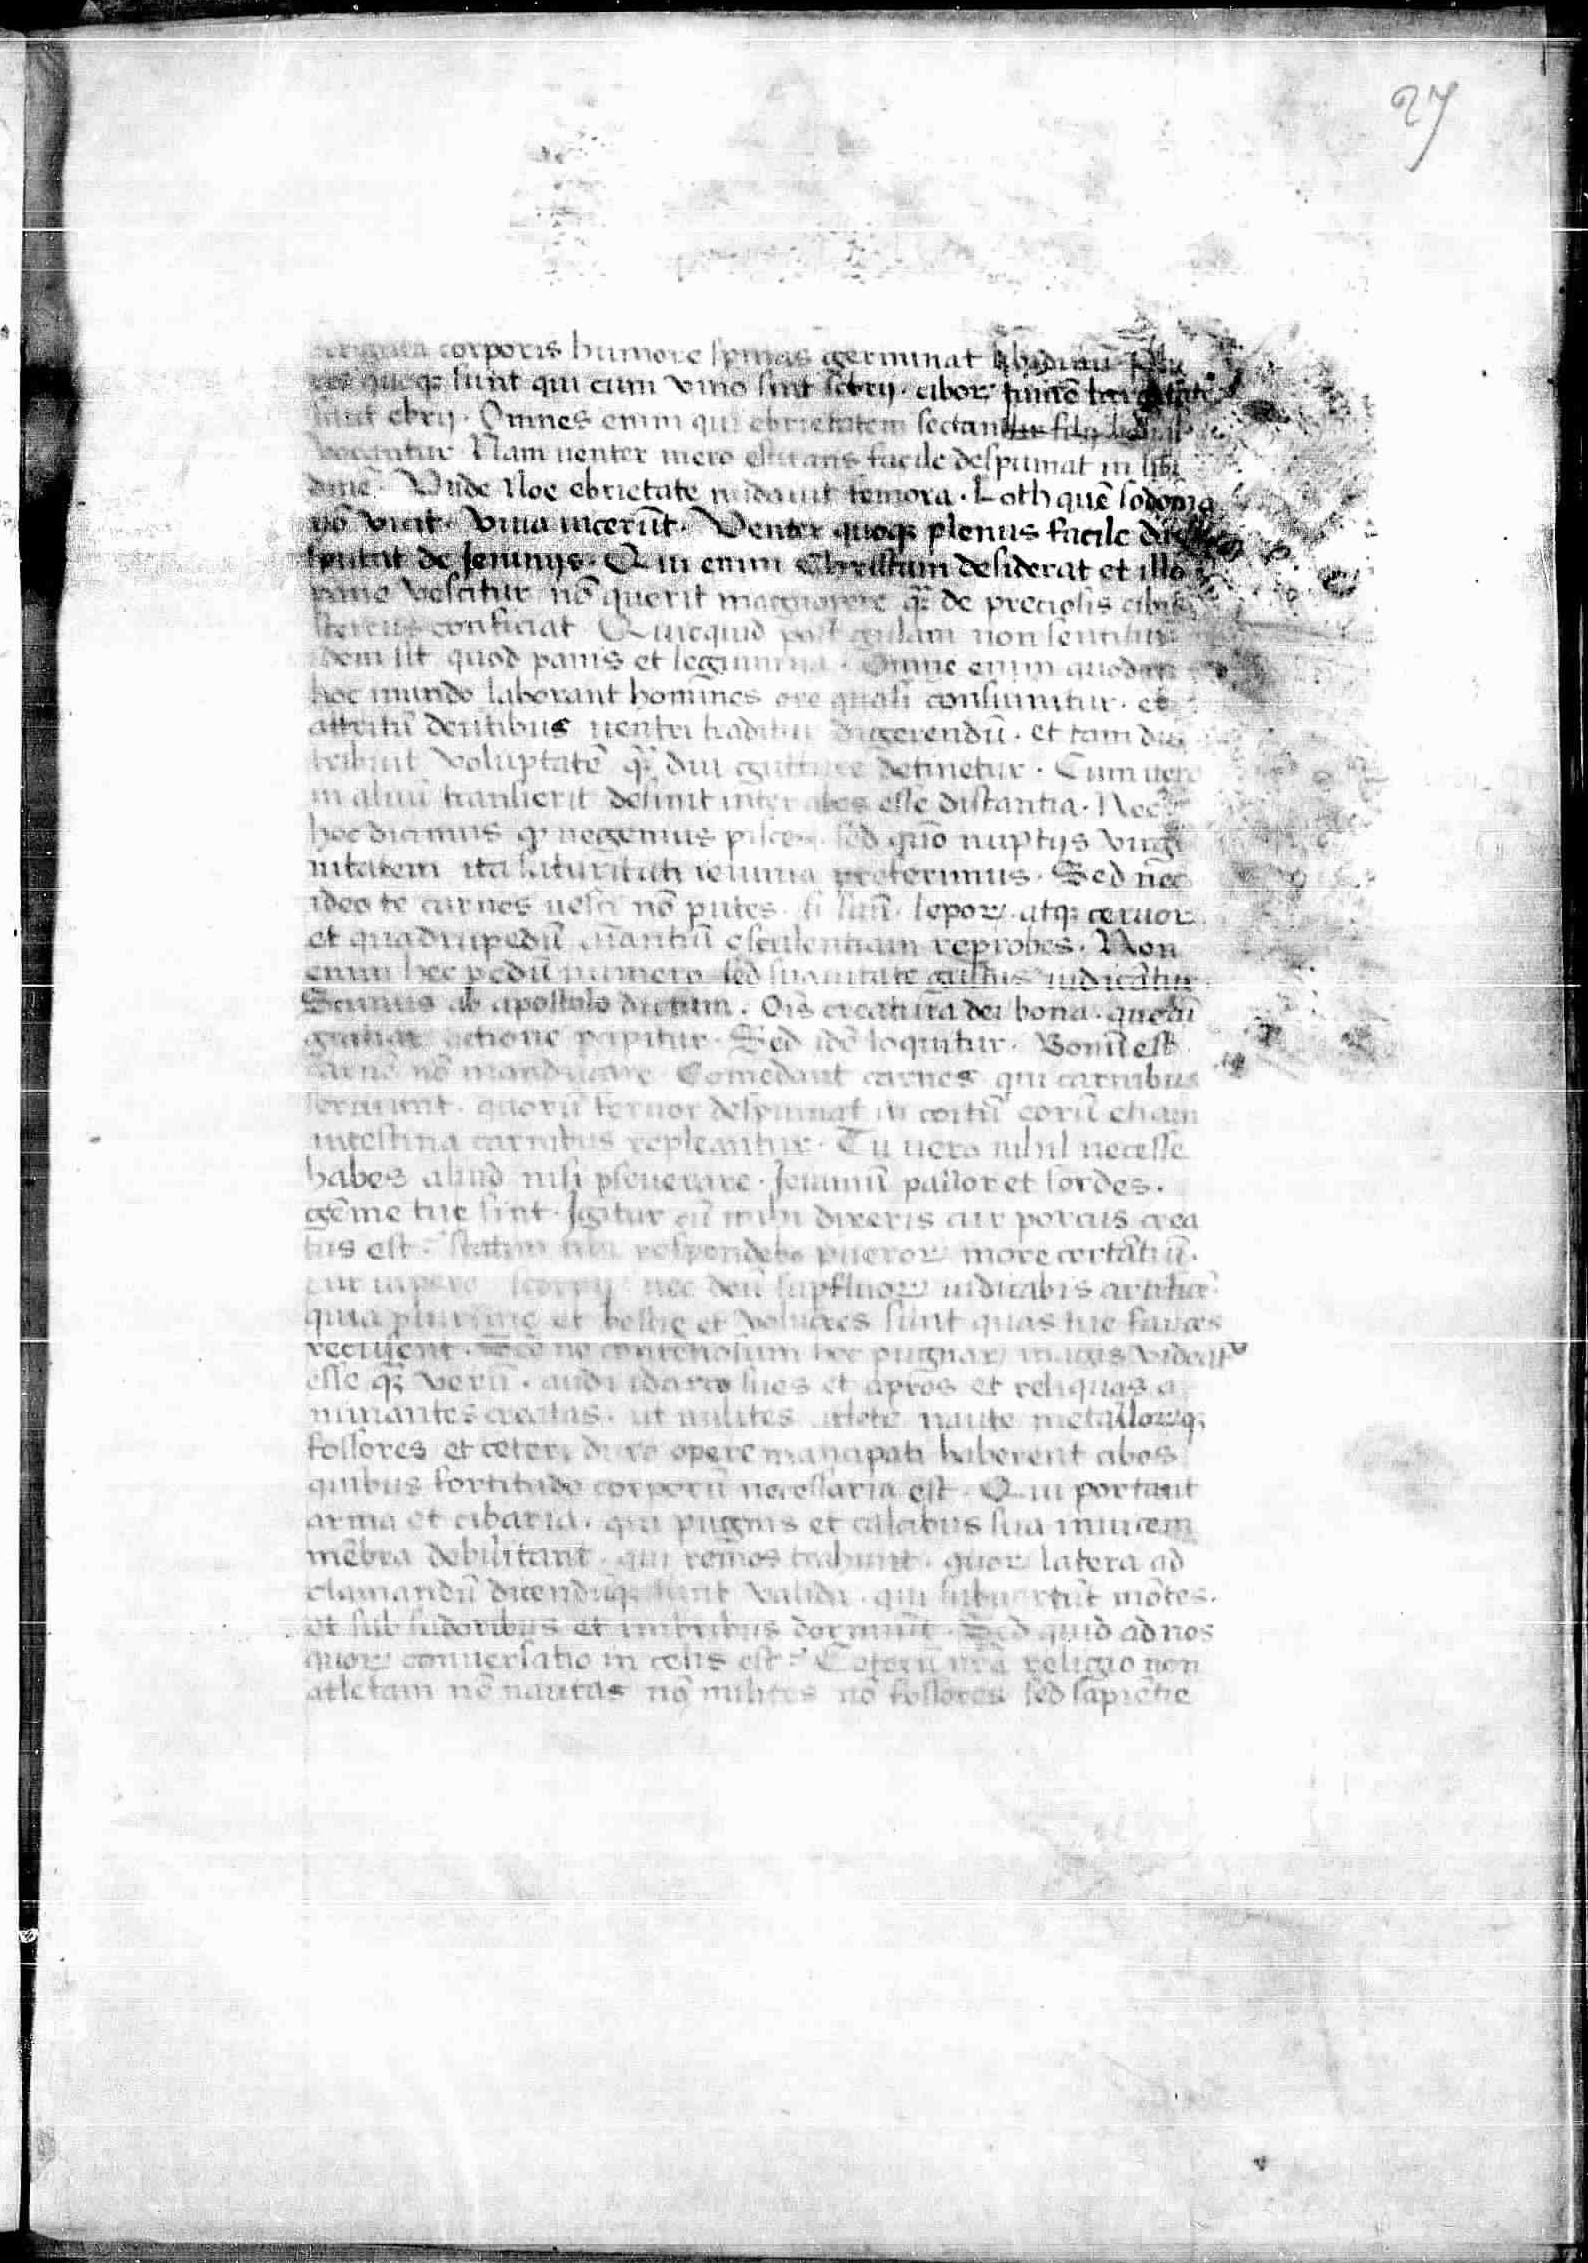 27
corporis humore spinas germinat libidinũ Plu
res quoqꝫ sunt qui cum vino sint sobrij · ciborꝝ largitate
sunt ebrij · Omnes enim qui ebrietatem sectantur filij
vocantur · Nam uenter mero estuans facile despumat in libi
dinẽ · Unde Noe ebrietate nudauit femora · Loth quẽ sodoma
nõ vicit · vina uicerũt · Venter quoqꝫ plenus facile dis
putat de Ieiunijs · Qui enim Christum desiderat et illo
pane vescitur nõ querit magnopere qꝫ de preciosis cibis
stercus conficiat Quicquid post gulam non sentitur
idem sit quod panis et legumina · Omne enim quod in
hoc mundo laborant homines ore quasi consumitur · et
attritũ dentibus uentri traditur digerendũ · et tam diu
tribuit voluptatẽ qꝫ diu gutture detinetur · Cum uero
in aluũ transierit desinit inter cibos esse distantia · Nec
hoc dicimus ꝙ negemus pisces · sed quõ nuptijs virgi
nitatem ita saturitati ieiunia preferimus · Sed nec
ideo te carnes uesci nõ putes · si suũ · leporꝝ · atqꝫ ceruorꝝ
et quadrupedũ aĩantiũ esculentiam reprobes · Non
enim hec pedũ numero sed suauitate gustus iudicãtur ·
Scimus ab apostolo dictum · Oĩs creatura dei bona · que cũ
gratiarꝝ actione pcipitur · Sed idẽ loquitur · Bonũ est
carnẽ nõ manducare Comedant carnes qui carnibus
seruiunt · quorũ feruor despumat in coitũ eorũ etiam
intestina carnibus repleantur · Tu uero nihil necesse
habes aliud nisi pseuerare · Ieiuniũ pallor et sordes ·
gẽme tue sint · Igitur cũ mihi dixeris cur porcus crea
tus est · statim tibi respondebo puerorꝝ more certãtiũ ·
cur uipere scorpij nec deũ supfluorꝝ iudicabis artificẽ ·
quia plurime et bestie et volucres sunt quas tue fauces
recusent · Sed ne contẽtiosum hec pugnax magis videatʳ
esse qꝫ verũ · audi idcirco sues et apros et reliquas a
nimantes creatas · ut milites atlete naute metallorꝝqꝫ
fossores et ceteri duro operi mancipati haberent cibos
quibus fortitudo corporũ necessaria est · Qui portant
arma et cibaria · qui pugnis et calcibus sua inuicem
mẽbra debilitant · qui remos trahunt · quorꝝ latera ad
clamandũ dicendũqꝫ sunt valida · qui subuertũt mõtes ·
et sub sudoribus et imbribus dormiũt · Sed quid ad nos
quorꝝ conuersatio in celis est · Ceterũ nr̃a religio non
atletam nõ nautas nõ milites nõ fossores sed sapiẽtie